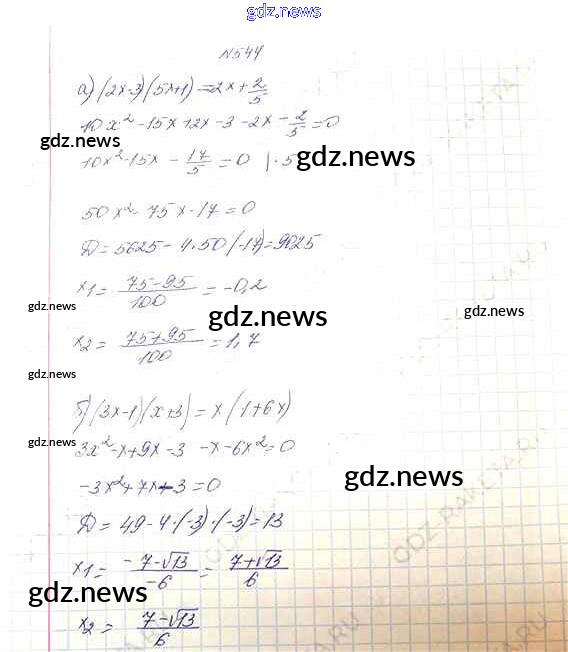 gdz.news
N544
а) (2x-3)(5x+1)=2x+2/5
10x²-15x+2x-3-2x-2/5=0
gdz.news
10x²-15x-17/5=0 |·5
gdz.news
50x²-75x-17=0
Д=5625-4·50(-17)=9025
x1=(75-95)/100=-0,2
gdz.news
gdz.news
gdz.news
x2=(75+95)/100=1,7
gdz.news
б) (3x-1)(x+3)=x(1+6x)
gdz.news
3x²-x+9x-3-x-6x²=0
gdz.news
-3x²+7x-3=0
Д=49-4·(-3)·(-3)=13
x1=(-7-√13)/-6=(7+√13)/6
gdz.news
x2=(7-√13)/6
GDZ-RAKETA.RU